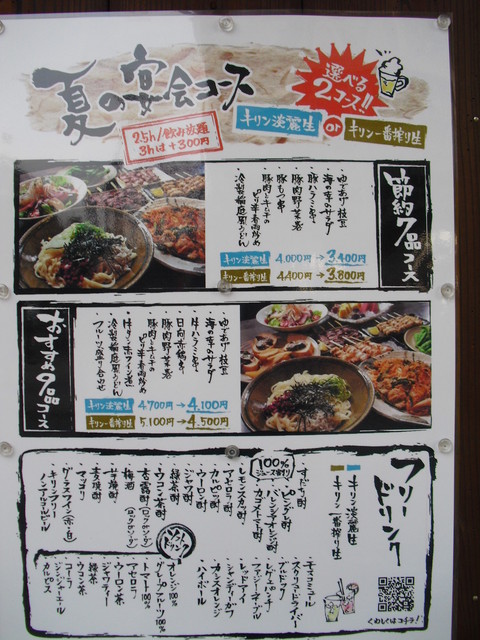 夏の宴会コース
選べる
2コース!!
2.5h/飲み放題
3hは+300円
キリン淡麗生
or
キリン一番搾り生
節約7品コース
・ゆであげ枝豆
・海の幸のサラダ
・豚ハラミ串
・豚もつ串
・豚肉野菜巻
・豚肉とキムチの
ピリ辛香南炒め
・冷製稲庭風うどん
キリン淡麗生 4.000円→3.400円
キリン一番搾り生 4.400円→3.800円
おすすめ9品コース
・ゆであげ枝豆
・海の幸のサラダ
・牛ハラミ串
・豚肉野菜巻
・日向赤鶏串
・豚肉とキムチの
ピリ辛香南炒め
・冷製稲庭風うどん
・フルーツ盛り合わせ
キリン淡麗生 4.700円→4.100円
キリン一番搾り生 5.100円→4.500円
フリードリンク
キリン淡麗生
キリン一番搾り生
100%
ジュース割り
・すだち酎
・ピングレ酎
・バレンシアオレンジ酎
・カゴメトマト酎
・レモンさん酎
・アセロラ酎
・カルピス酎
・ウーロン酎
・ジャワ酎
・緑茶酎
・ウコン茶酎
・杏露酎(ロック・ソーダ)
・梅酒(ロック・ソーダ)
・芋焼酎
・麦焼酎
・マッコリ
・グラスワイン(赤・白)
・キリンフリー
ノンアルコールビール
・モスコミュール
・スクリュードライバー
・ブルドッグ
・レゲエパンチ
・ファジーネーブル
・レッドアイ
・シャンディガフ
・カシスオレンジ
・ハイボール
ソフトドリンク
・オレンジ100%
・グレープフルーツ100%
・トマト100%
・アセロラ
・ウーロン茶
・ジャワティー
・緑茶
・ウコン茶
・コーラ
・ジンジャエール
・カルピス
くわしくはコチラ!